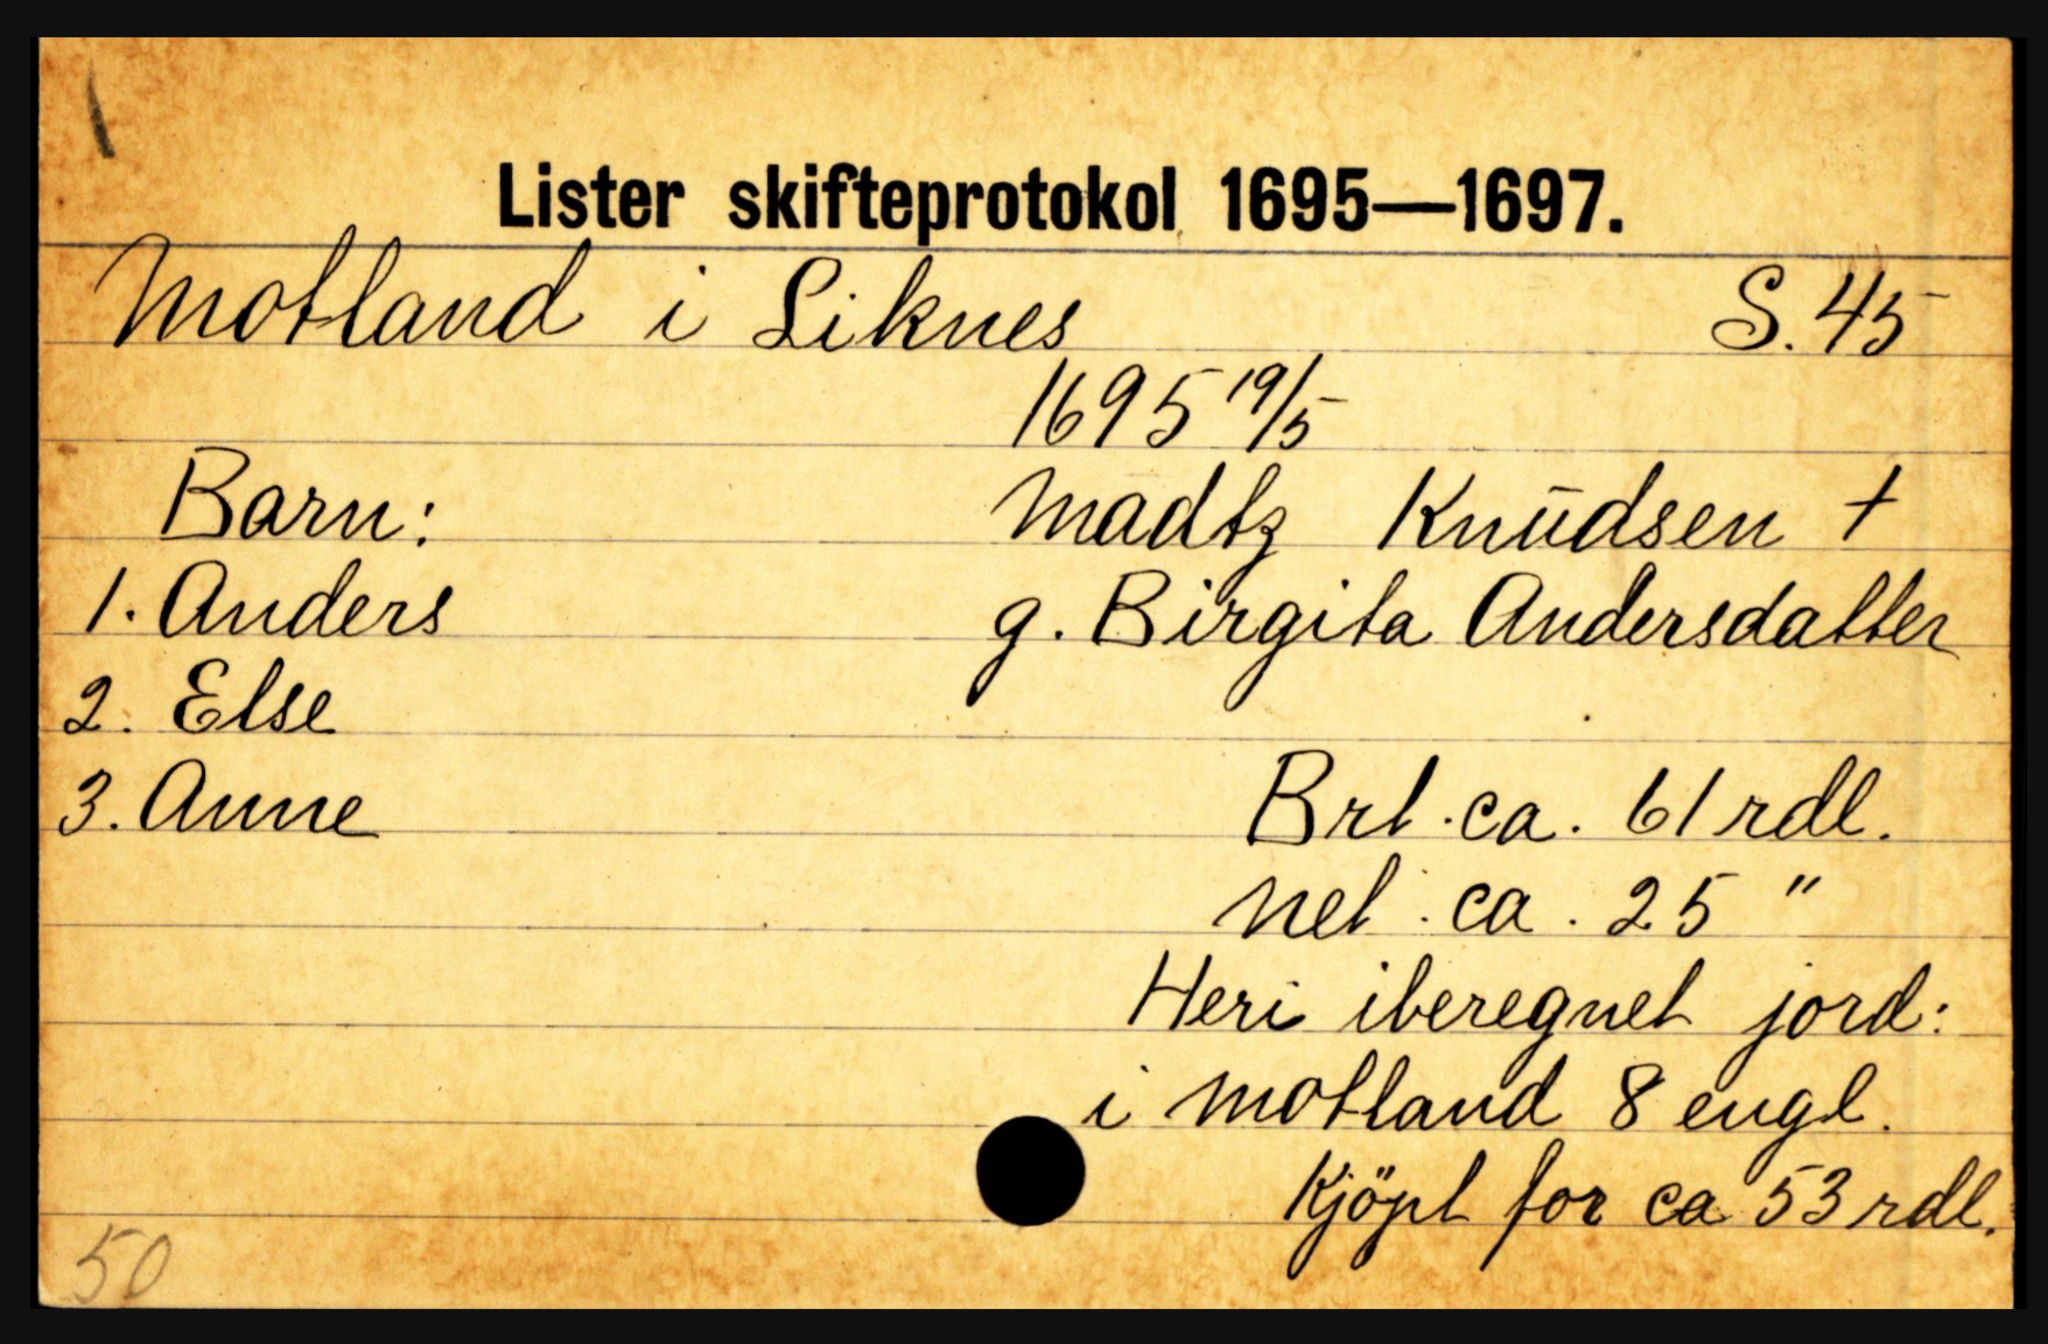 Lister skifteprotokol 1695—1697.
Motland i Liknes S. 45
1695 19/5
Barn: Madtz Knudsen +
1. Anders g. Birgita Andersdatter
2. Else
3. Anne Brt. ca. 61 rdl.
Net. ca. 25 "
Heri iberegnet jord:
i Motland 8 engl.
Kjöpt for ca 53 rdl.
50